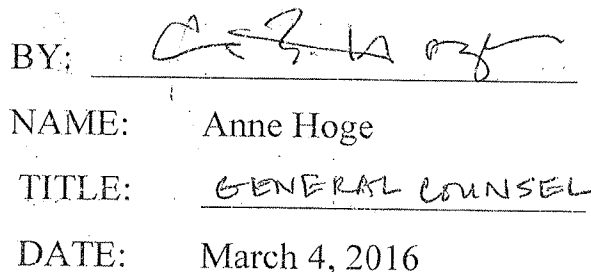 BY:
NAME: Anne Hoge
TITLE: GENERAL COUNSEL
DATE: March 4, 2016